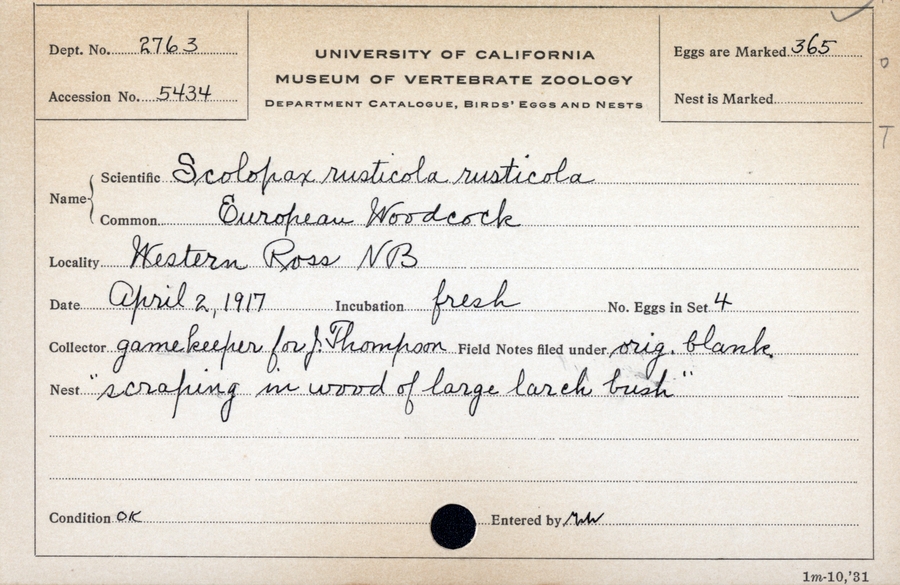 Dept. No. 2763
UNIVERSITY OF CALIFORNIA
MUSEUM OF VERTEBRATE ZOOLOGY
DEPARTMENT CATALOGUE, BIRDS' EGGS AND NESTS
Eggs are Marked 365
Accession No. 5434
Nest is Marked
O
T
Name
Scientific Scolopax rusticola rusticola
Common European Woodcock
Locality Western Ross NB
Date April 2, 1917 Incubation fresh No. Eggs in Set 4
Collector gamekeeper for J. Thompson Field Notes filed under orig. blank
Nest "scraping in wood of large larch bush"
Condition OK Entered by
1m-10,'31